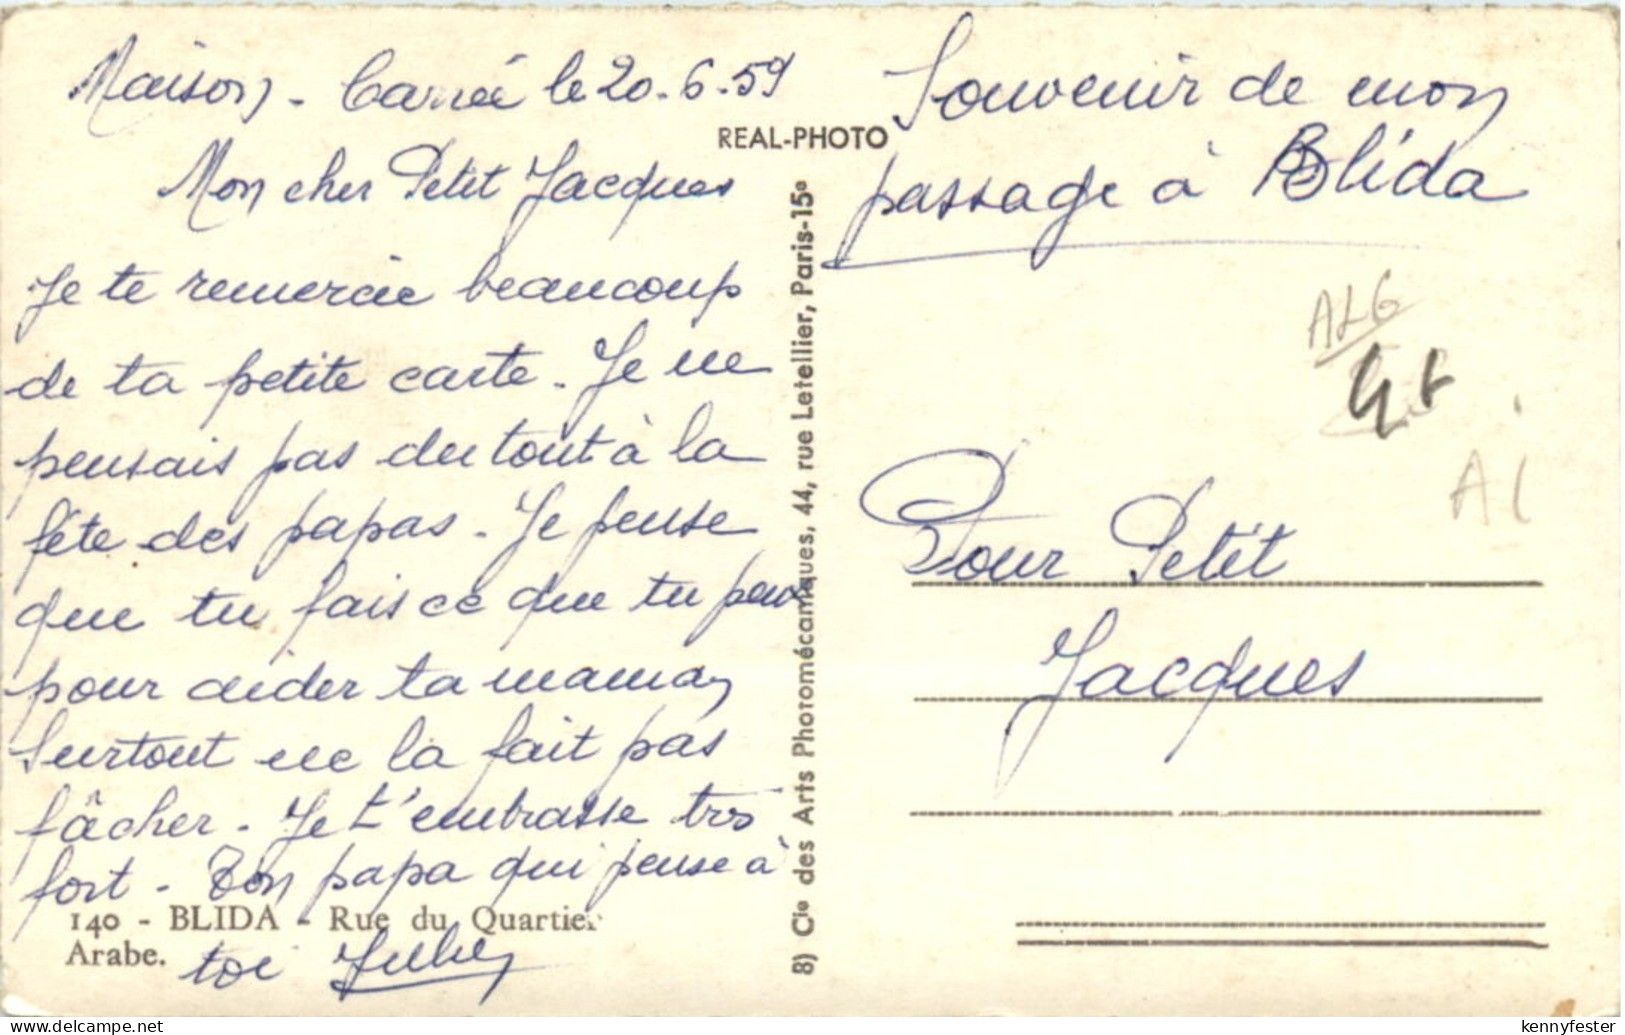 Maison-Carrée le 20.6.59
Mon cher Petit Jacques
Je te remercie beaucoup
de ta petite carte. Je ne
pensais pas du tout à la
fête des papas. Je pense
que tu fais ce que tu peux
pour aider ta maman
Surtout ne la fait pas
fâcher. Je t'embrasse très
fort. Ton papa qui pense à
toi
140 - BLIDA - Rue du Quartier
Arabe.
REAL-PHOTO
8) Cie des Arts Photomécaniques, 44, rue Letellier, Paris-15e
Souvenir de mon
passage à Blida
ALG
A1
Pour Petit
Jacques
kennyfester